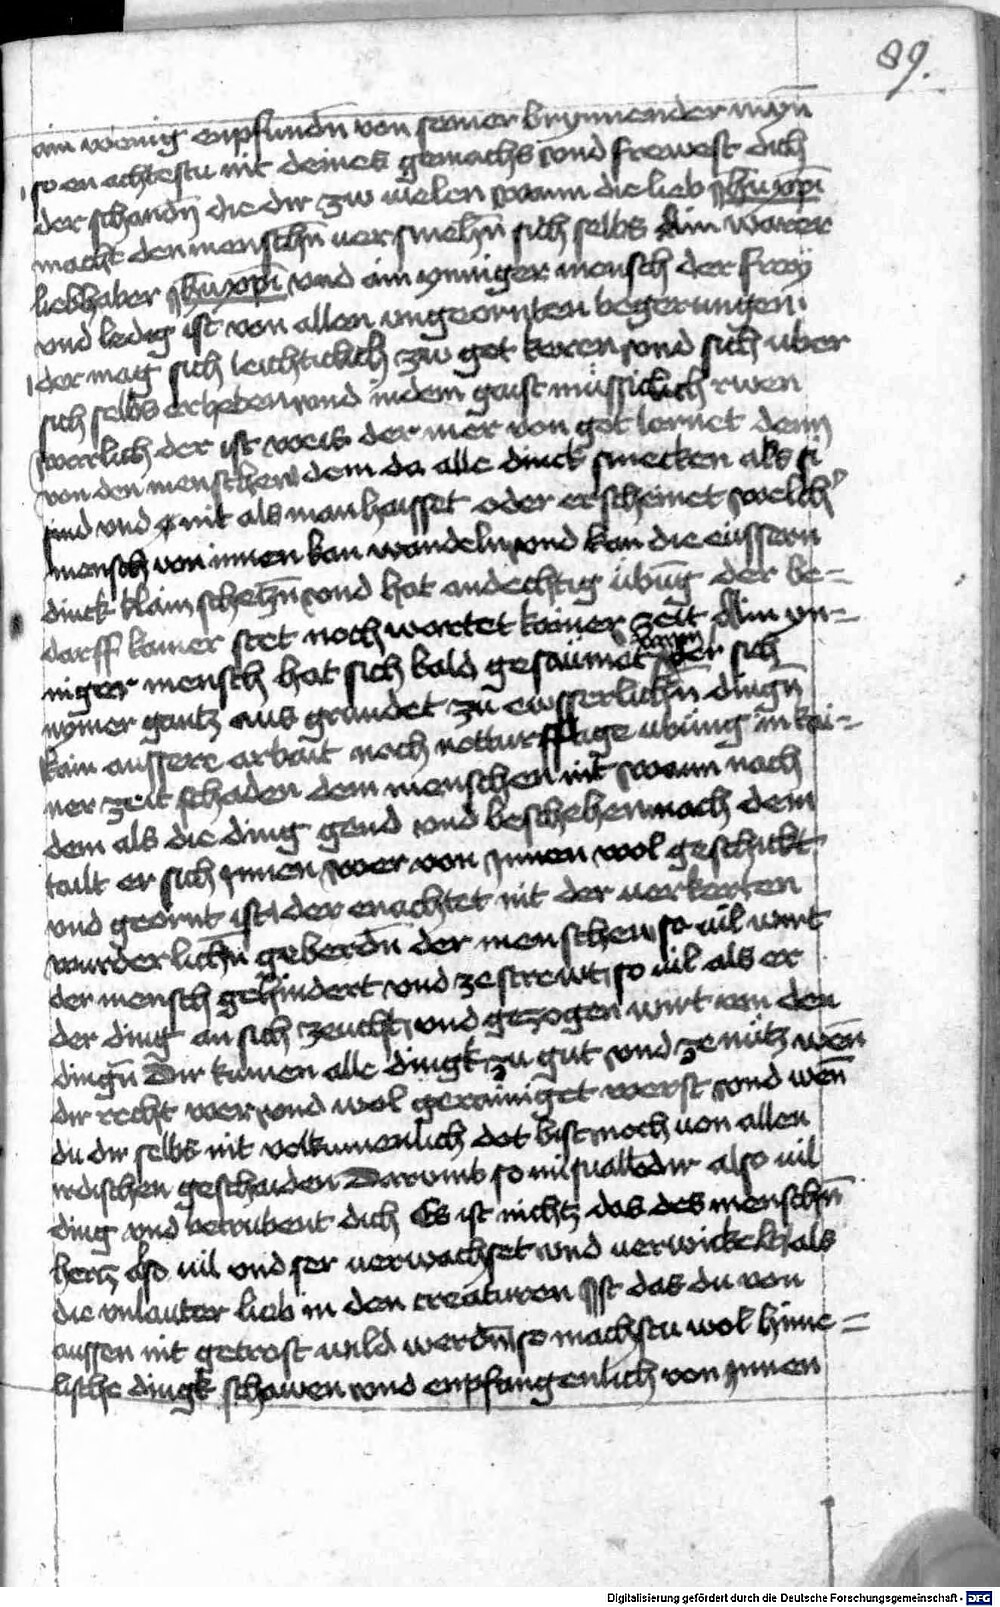 89.
ain wenig enpfunden von seiner brynnender myn̄
so en achtestu nit deines gemachs vnd frewest dich
der schandn̄ die dir zw vielen wann die lieb jhu xpi
macht den menschn̄ versmehn̄ sich selbs Ain warer
liebhaber jhu xpi vnd ain ynniger mensch der frey
vnd ledig ist von allen vngeornten begerungen
der mag sich leichticlich zw got keren vnd sich uber
sich selbs erheben vnd in dem gaist müssiclich rwen
werlich der ist weis der mer von got lernet denn
von den menschen dem da alle dinck smecken als si
sind vnd nit als man haysset oder erscheinet welch
mensch von innen kan wandeln vnd kan die eüssern
dinck klain scheczn̄ vnd hat andechtig übūg der be=
darff kainer stet noch wartet kainer zeit Ain yn=
niger mensch hat sich bald gesaümet wann er sich
nymer gantz aus grundet zu ewsserlichn̄ dingn̄
kain aussere arbait noch notturfftige ubung in kai=
ner zeit schaden dem menschen nit wann nach
dem als die ding gend vnd beschehen nach dem
tailt er sich ynnen wer von ynnen wol geschickt
vnd geornt ist der enachtet nit der verkerten
wunderlichn̄ geberdn̄ der menschen so vil wirt
der mensch gehindert vnd zestrewt so vil als er
der ding an sich zeucht vnd gezogen wirt von den
dingn̄ Dir kumen alle dingk zu gut vnd ze nütz wen̄
dir recht wer vnd wol gerainiget werst vnd wen̄
du dir selbs nit volkumenlich dot bist noch von allen
irdischen geschaiden Darumb so misuallen dir also vil
ding vnd betrubent dich Es ist nichtz das des menschn̄
hertz also vil vnd ser verwachset vnd verwickelt als
die vnlauter lieb in den creaturen Ist das du von
aussen nit getrost wild werdn̄ so machstu wol hime=
lische dingk schawen vnd enpfangenlich von ynnen
Digitalisierung gefördert durch die Deutsche Forschungsgemeinschaft - DFG